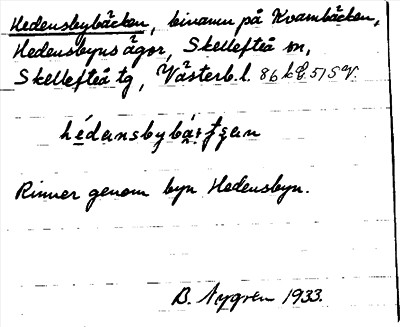 Hedensbybäcken, binamn på Kvarnbäcken,
Hedensbyns ägor, Skellefteå sn,
Skellefteå tg, Västerb. l.
Rinner genom byn Hedensbyn.
B. Nygren 1933.